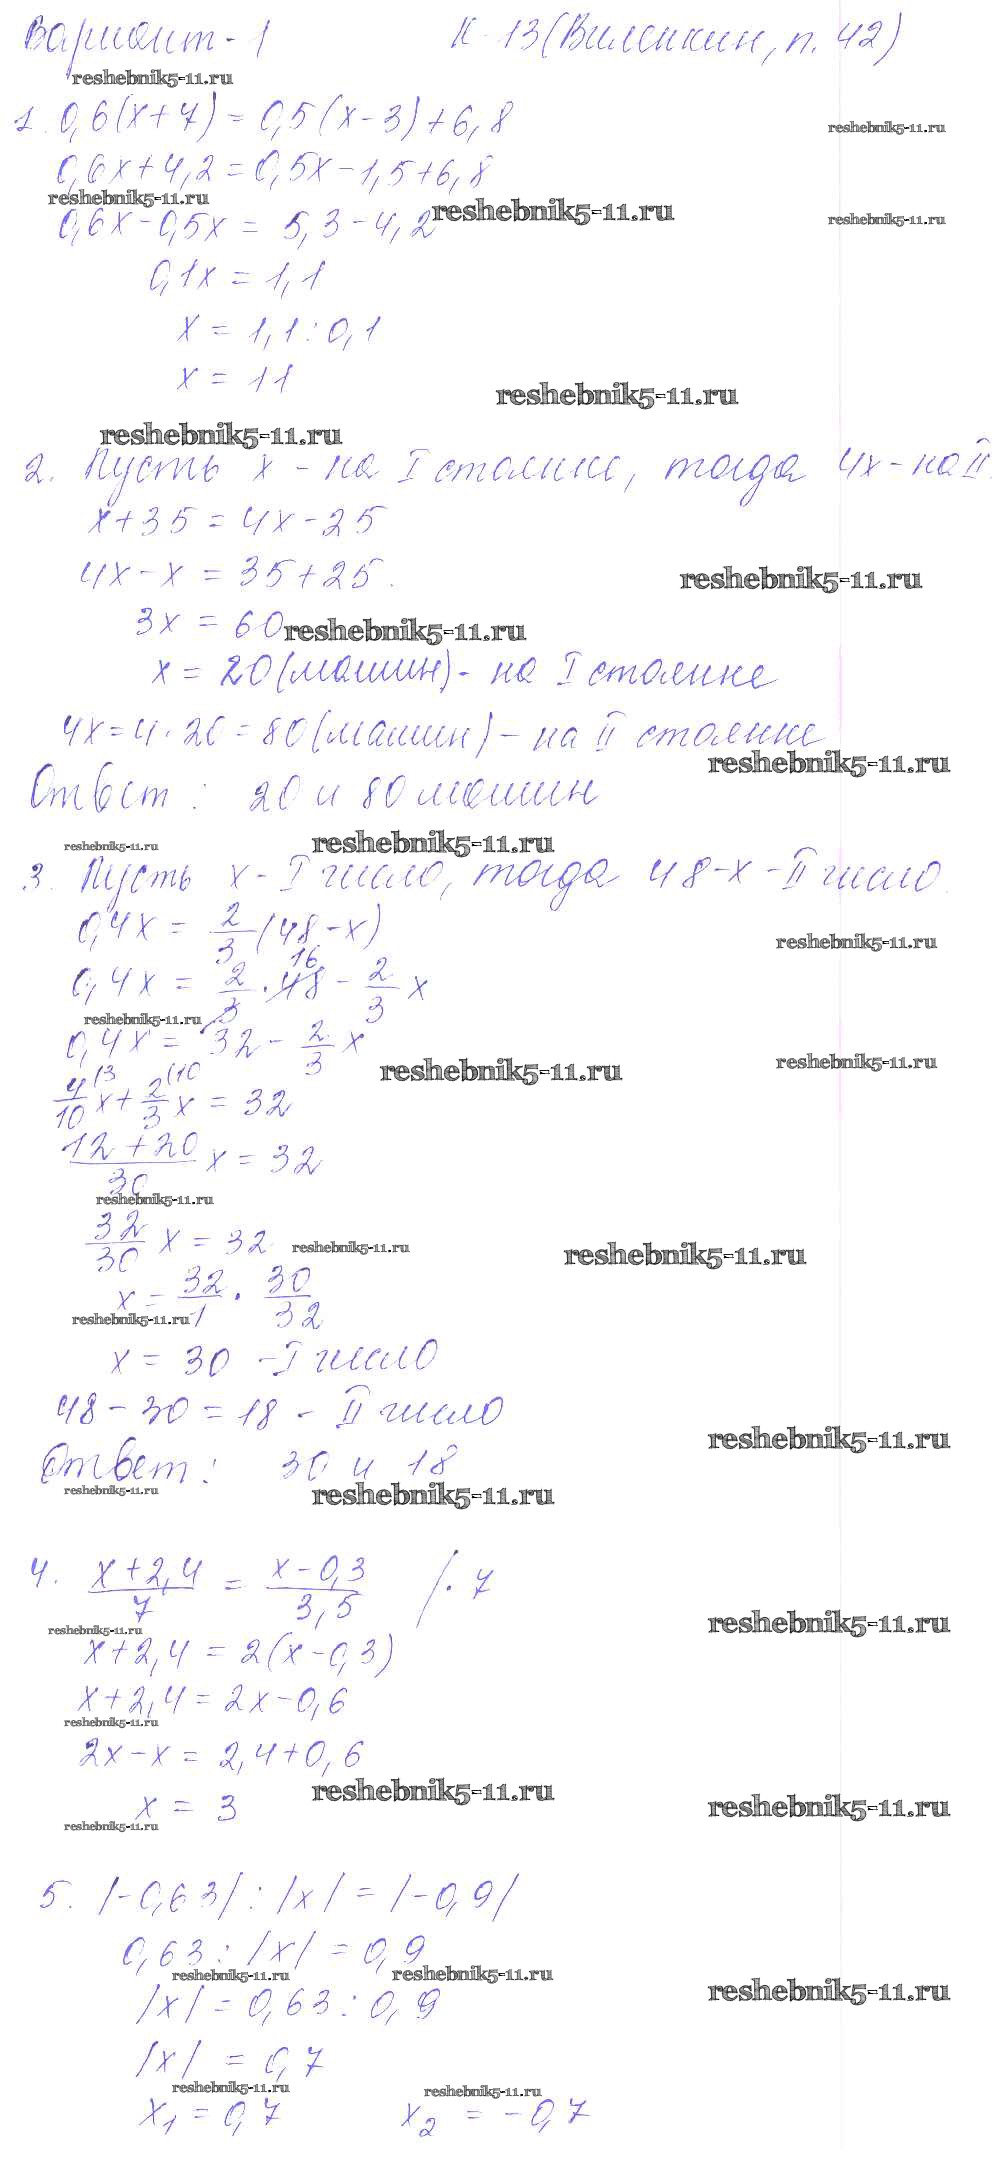 Вариант-1 К-13 (Виленкин, п. 42)
reshebnik5-11.ru
1. 0,6(x+7) = 0,5(x-3)+6,8
reshebnik5-11.ru
0,6x+4,2 = 0,5x-1,5+6,8
reshebnik5-11.ru reshebnik5-11.ru reshebnik5-11.ru
0,6x-0,5x = 5,3-4,2
0,1x = 1,1
x = 1,1:0,1
x = 11
reshebnik5-11.ru
reshebnik5-11.ru
2. Пусть x - на I стоянке, тогда 4x - на II.
x+35 = 4x-25
4x-x = 35+25.
reshebnik5-11.ru
3x = 60
reshebnik5-11.ru
x = 20 (машин) - на I стоянке
4x = 4·20 = 80 (машин) - на II стоянке
reshebnik5-11.ru
Ответ: 20 и 80 машин
reshebnik5-11.ru reshebnik5-11.ru
3. Пусть x - I число, тогда 48-x - II число.
0,4x = 2/3 (48-x)
reshebnik5-11.ru
16
0,4x = 2/3 · 48 - 2/3 x
reshebnik5-11.ru
0,4x = 32 - 2/3 x
reshebnik5-11.ru reshebnik5-11.ru
4/10 (3 x + 2/3 (10 x = 32
12+20/30 x = 32
reshebnik5-11.ru
32/30 x = 32
reshebnik5-11.ru reshebnik5-11.ru
x = 32/1 · 30/32
reshebnik5-11.ru
x = 30 - I число
48-30 = 18 - II число
reshebnik5-11.ru
Ответ: 30 и 18
reshebnik5-11.ru reshebnik5-11.ru
4. x+2,4/7 = x-0,3/3,5 /·7
reshebnik5-11.ru reshebnik5-11.ru
x+2,4 = 2(x-0,3)
x+2,4 = 2x-0,6
reshebnik5-11.ru
2x-x = 2,4+0,6
reshebnik5-11.ru reshebnik5-11.ru
x = 3
reshebnik5-11.ru
5. |-0,63| : |x| = |-0,9|
0,63 : |x| = 0,9
reshebnik5-11.ru reshebnik5-11.ru reshebnik5-11.ru
|x| = 0,63 : 0,9
|x| = 0,7
reshebnik5-11.ru reshebnik5-11.ru
x₁ = 0,7 x₂ = -0,7